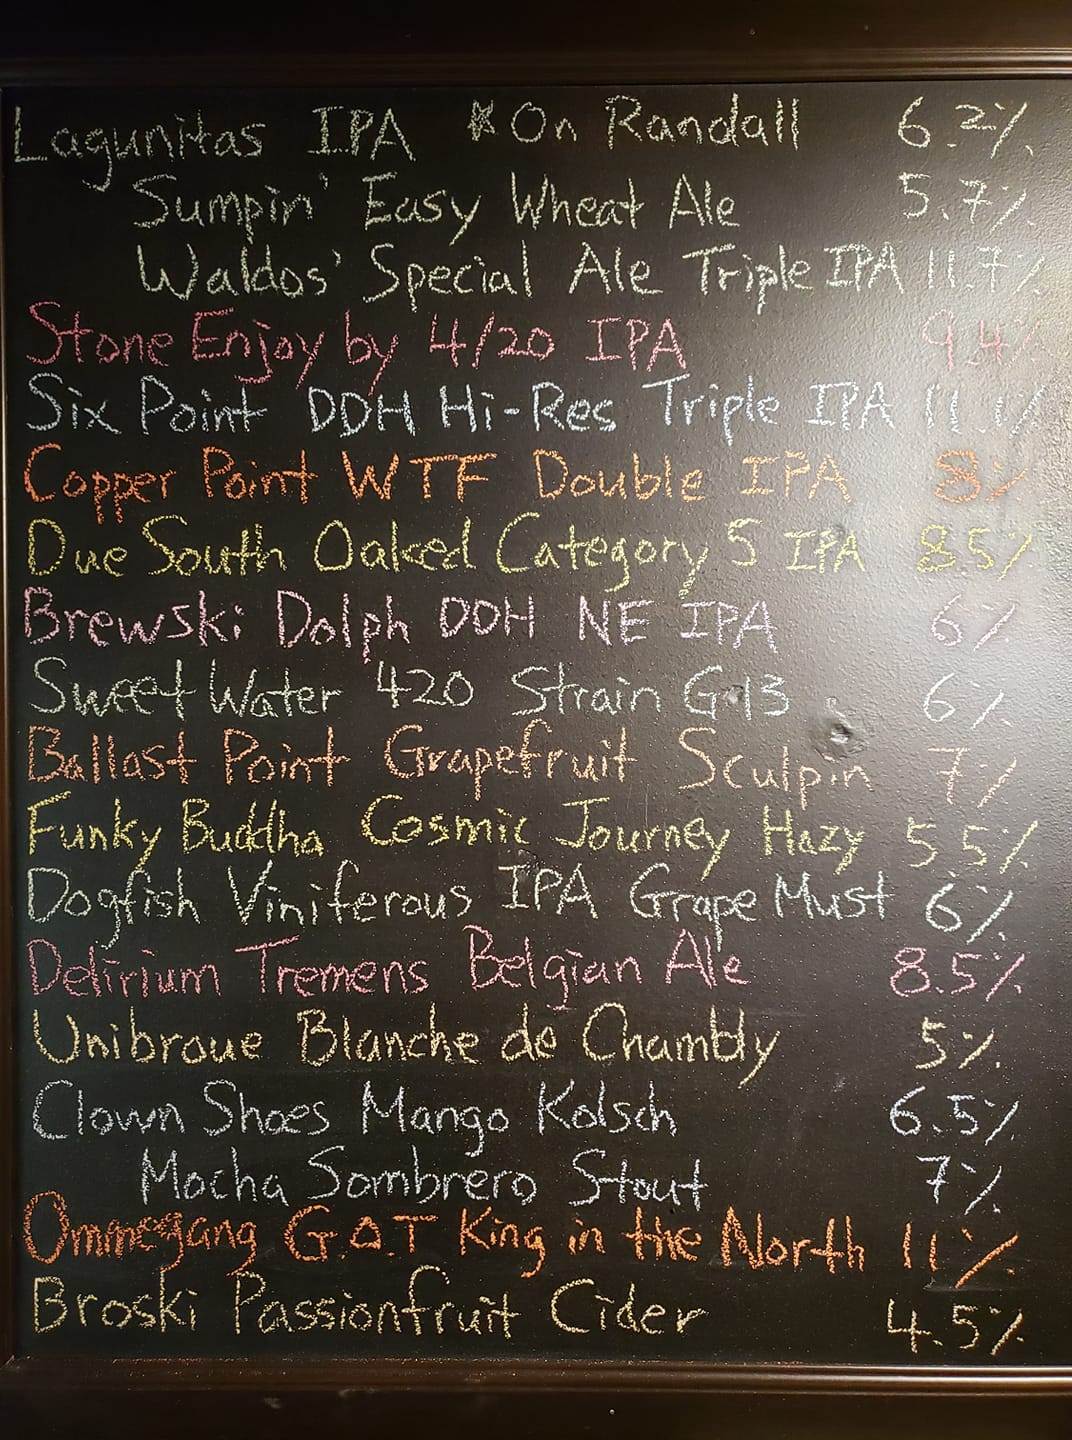 Lagunitas IPA *On Randall 6.2%
Sumpin' Easy Wheat Ale 5.7%
Waldos' Special Ale Triple IPA 11.7%
Stone Enjoy by 4/20 IPA 9.4%
Six Point DDH Hi-Res Triple IPA 11.1%
Copper Point WTF Double IPA 8%
Due South Oaked Category 5 IPA 8.5%
Brewski Dolph DDH NE IPA 6%
Sweet Water 420 Strain G-13 6%
Ballast Point Grapefruit Sculpin 7%
Funky Buddha Cosmic Journey Hazy 5.5%
Dogfish Viniferous IPA Grape Must 6%
Delirium Tremens Belgian Ale 8.5%
Unibroue Blanche de Chambly 5%
Clown Shoes Mango Kolsch 6.5%
Mocha Sombrero Stout 7%
Ommegang G.O.T King in the North 11%
Broski Passionfruit Cider 4.5%